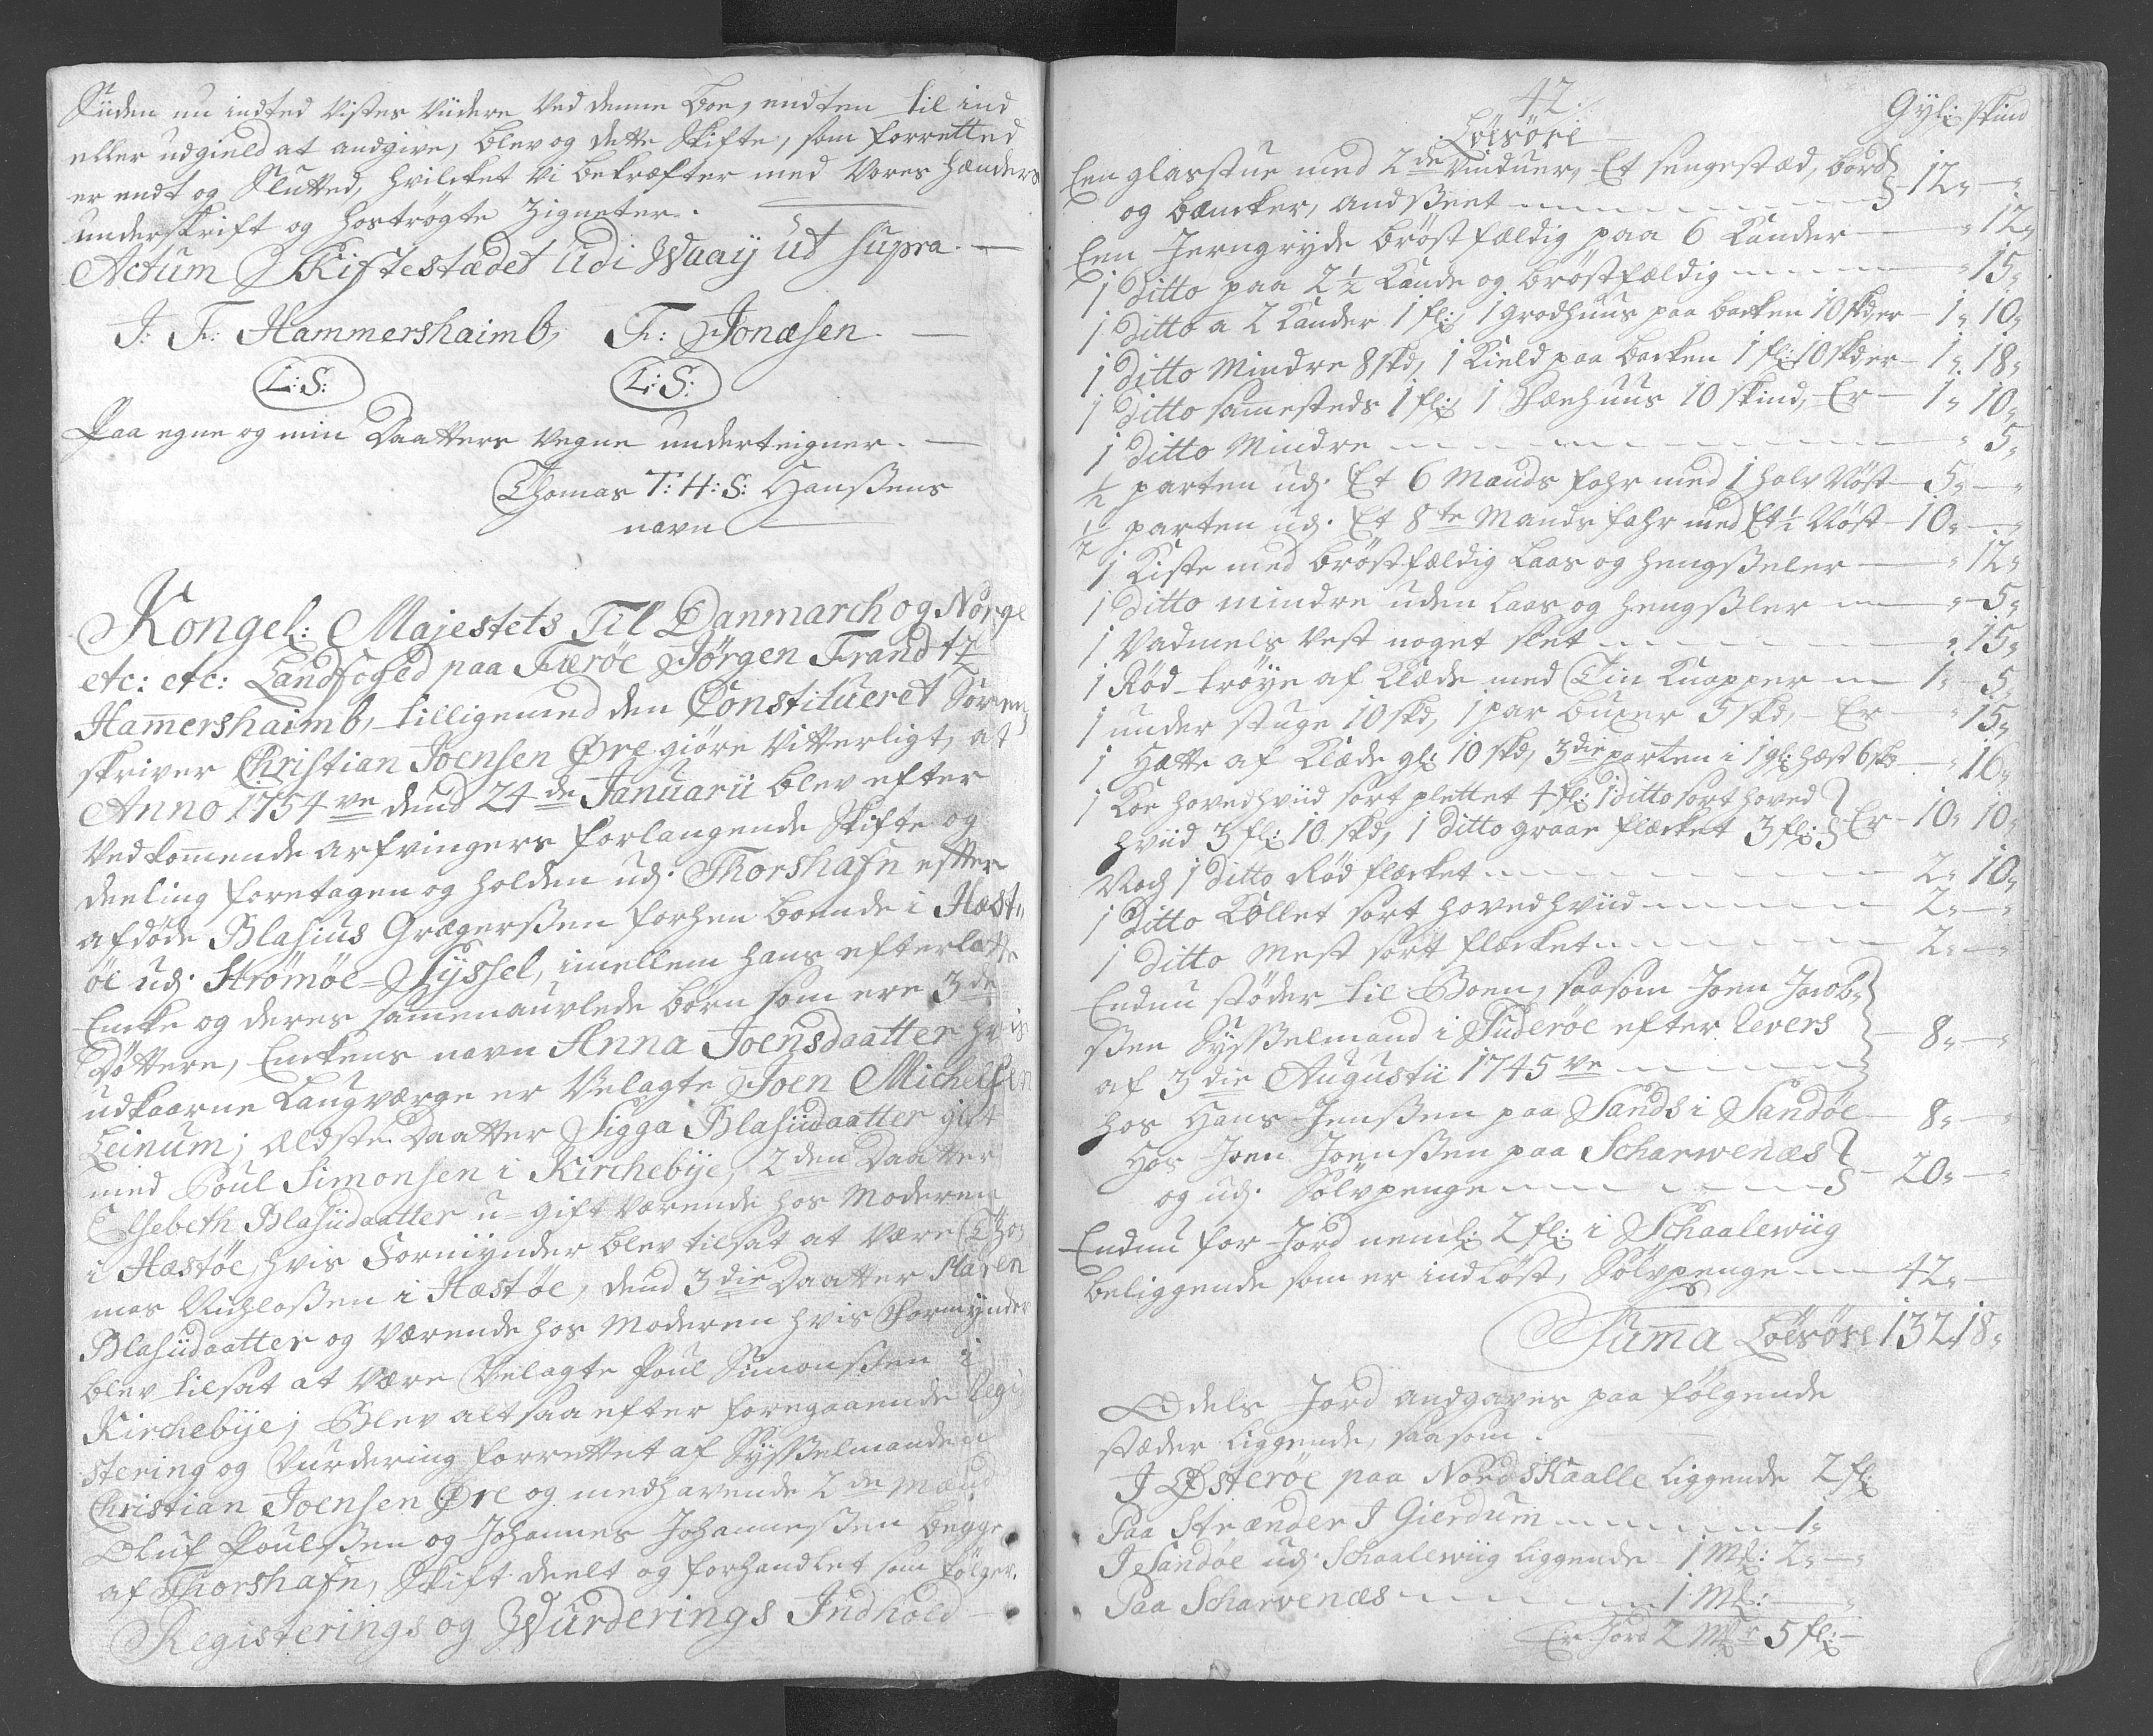 Siiden nu indted vistes viidere ved denne Boe, endten til ind
eller udgield at andgive, blev og dette Skifte, som forretted
er endt og Sluttet, hvilcket vi bekræfter med vores hænders
underskrift og hostrøgte Zigneter.
Actum Skiftestædet udi Waaij ut supra.
J: F: Hammershaimb, F: Jonæsen.
L: S: L: S:
Paa egne og min Daatters vegne underteigner.
Thomas T: H: S: Hanßens
navn
Kongel: Majestets Til Danmarch og Norge
etc: etc: Landfoged paa Færøe Jørgen Frandtz
Ham̄ershaimb, tilligemed den Constitueret Soren-
skriver Christian Joensen Øre giøre vitterligt, at
Anno 1754 ve dend 24 de Januarii blev efter
vedkom̄ende arfvingers forlangende Skifte og
deeling foretagen og holden udj Thorshafn efter
afdøde Blasius Grægerßen forhen boende i Hæst-
øe udj Strømøe-Sÿssel, imellem hans efterlatte
Encke og deres sam̄enauvlede børn som ere 3 de
Døttere, Enckens navn Anna Joensdaatter hvis
udkaarne Laugværge er Velagte Joen Michelsen
Leinum; ældste Daatter Sigga Blasiidaatter gift
med Poul Simonsen i Kirchebÿe, 2 den Daatter
Elsebeth Blasiidaatter u-gift værende hos Moderen
i Hæstøe, hvis Formÿnder blev tilsat at være Tho-
mas Nichlaßen i Hæstøe, dend 3 die Daatter Maren
Blasiidaatter og værende hos Moderen hvis Formÿnder
blev tilsat at være Velagte Poul Simonßen i
Kirchebÿe; Blev altsaa efter foregaaende Regi-
stering og Vurdering forrettet af Sÿßelmanden
Christian Joensen Øre og medhavende 2 de Mænd
Oluf Poulßen og Johannes Johanneßen begge
af Thorshafn, Skift deelt og forhandlet som følger.
Registerings og Wurderings Indhold
42.
Løesøre Gyl: skind
Een glasstue med 2 de Vinduer, Et sengestæd, bord
og bæncker, andßeet 12„ — „
Een Jerngryde brøstfældig paa 6 Kander „ 12„
1 Ditto paa 2 1/2 Kande og brøstfældig „ 15„
1 ditto a 2 Kander 1 fl: 1 grodhuus paa backen 10 skd er 1„ 10„
1 ditto Mindre 8 skd, 1 Kield paa backen 1 fl: 10 skd er 1„ 18„
1 ditto sam̄esteds 1 fl: 1 Fæehuus 10 skind, Er 1„ 10„
1 ditto Mindre „ 5„
1/2 parten udj Et 6 Mands fahr med 1 halv Nøst 5„ — „
1/2 parten udj Et 8 te Mands fahr med Et 1/2 Nøst 10„ — „
1 Kiste med brøstfældig Laas og hengßeler „ 12„
1 Ditto mindre uden Laas og hengßler „ 5„
1 Vadmels vest noget slet „ 15„
1 Rød trøÿe af Klæde med Tin Knapper 1„ 5„
1 under stuge 10 skd, 1 par buxer 5 skd, Er „ 15„
1 Hatte af Klæde gl: 10 skd, 3 die parten i 1 gl: hæst 6 sk „ 16„
1 Koe hovedhviid sort plettet 4 fl: 1 ditto sort hoved
hviid 3 fl: 10 skd, 1 ditto graae flæcket 3 fl: Er 10„ 10„
Noch 1 ditto Rød flæcket 2„ 10„
1 Ditto Kollet sort hovedhviid 2„ — „
1 ditto Mest sort flæcket 2„ — „
Endnu støder til Boen, saasom Joen Jacob-
ßen Sÿßelmand i Suderøe efter Revers
af 3 die Augustii 1745 ve 8„ — „
hos Hans Jenßen paa Sands i Sandøe 8„ — „
Hos Joen Joenßen paa Scharwenæs
og udj Sølvpenge 20„ — „
Endnu for Jord neml: 2 fl: i Schaalewiig
beliggende som er indløst, Sølvpenge 42„ —
Sum̄a Løesøre 132„ 18„
Odels Jord andgaves paa følgende
stæder liggende, saasom.
I Østerøe paa Nordskaalle liggende 2 fl:
Paa Strænder I Gierdum 1„
I Sandøe udj Schaalewiig liggende 1 Mk: 2„ — „
Paa Scharvenæs 1 Mk: — „
Er Jord 2 Mk r 5 fl: —